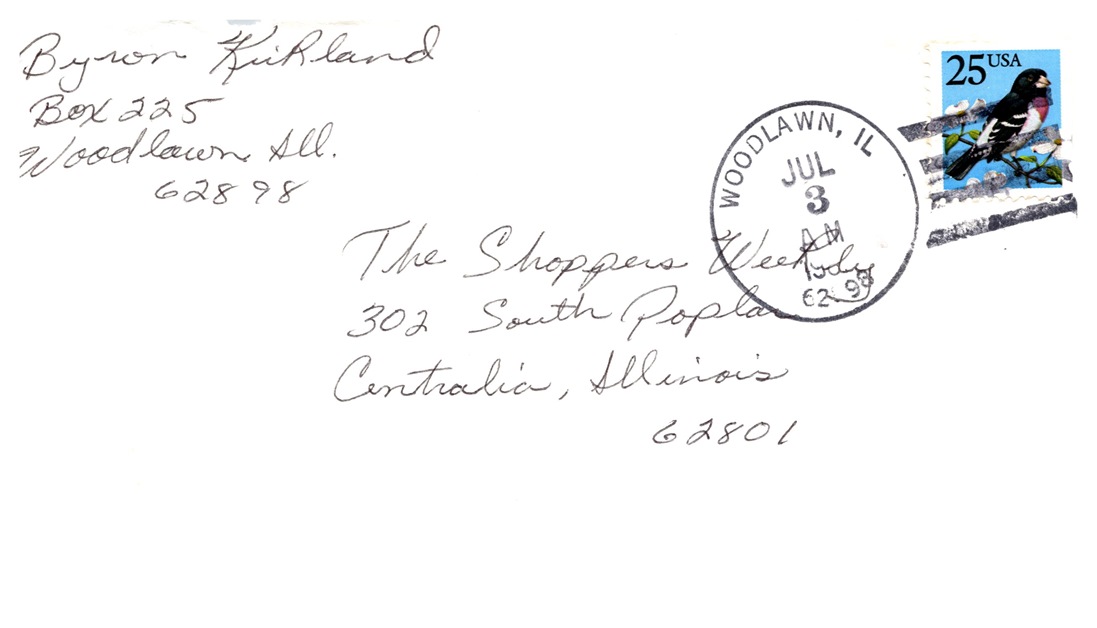 Byron Kirkland
Box 225
Woodlawn Ill.
62898
25 USA
WOODLAWN, IL
JUL
3
AM
The Shoppers Weekly
302 South Poplar
Centralia, Illinois
62801